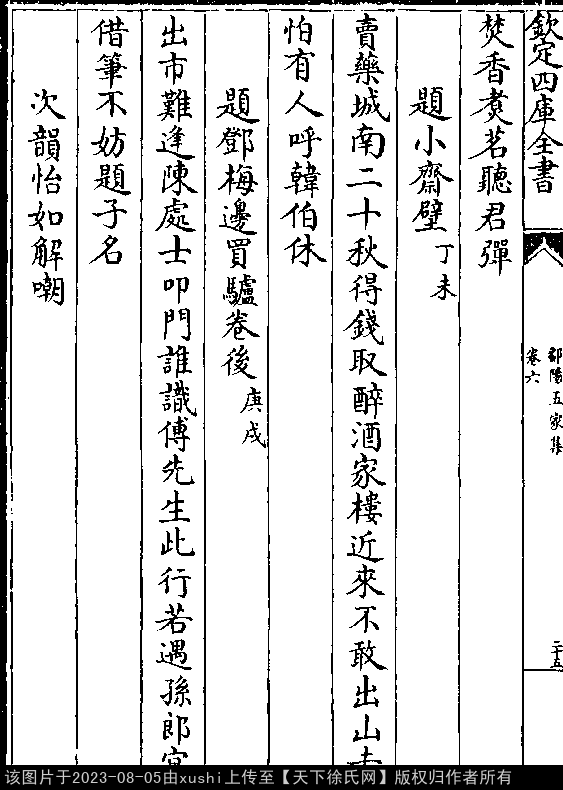 欽定四庫全書
鄱陽五家集
卷六
二十五
焚香煑茗聽君彈
題小齋壁丁未
賣藥城南二十秋得錢取醉酒家樓近來不敢出山去
怕有人呼韓伯休
題鄧梅邊買驢卷後庚戌
出市難逢陳處士叩門誰識傅先生此行若遇孫郎官
借筆不妨題子名
次韻怡如解嘲
该图片于2023-08-05由xushi上传至【天下徐氏网】版权归作者所有